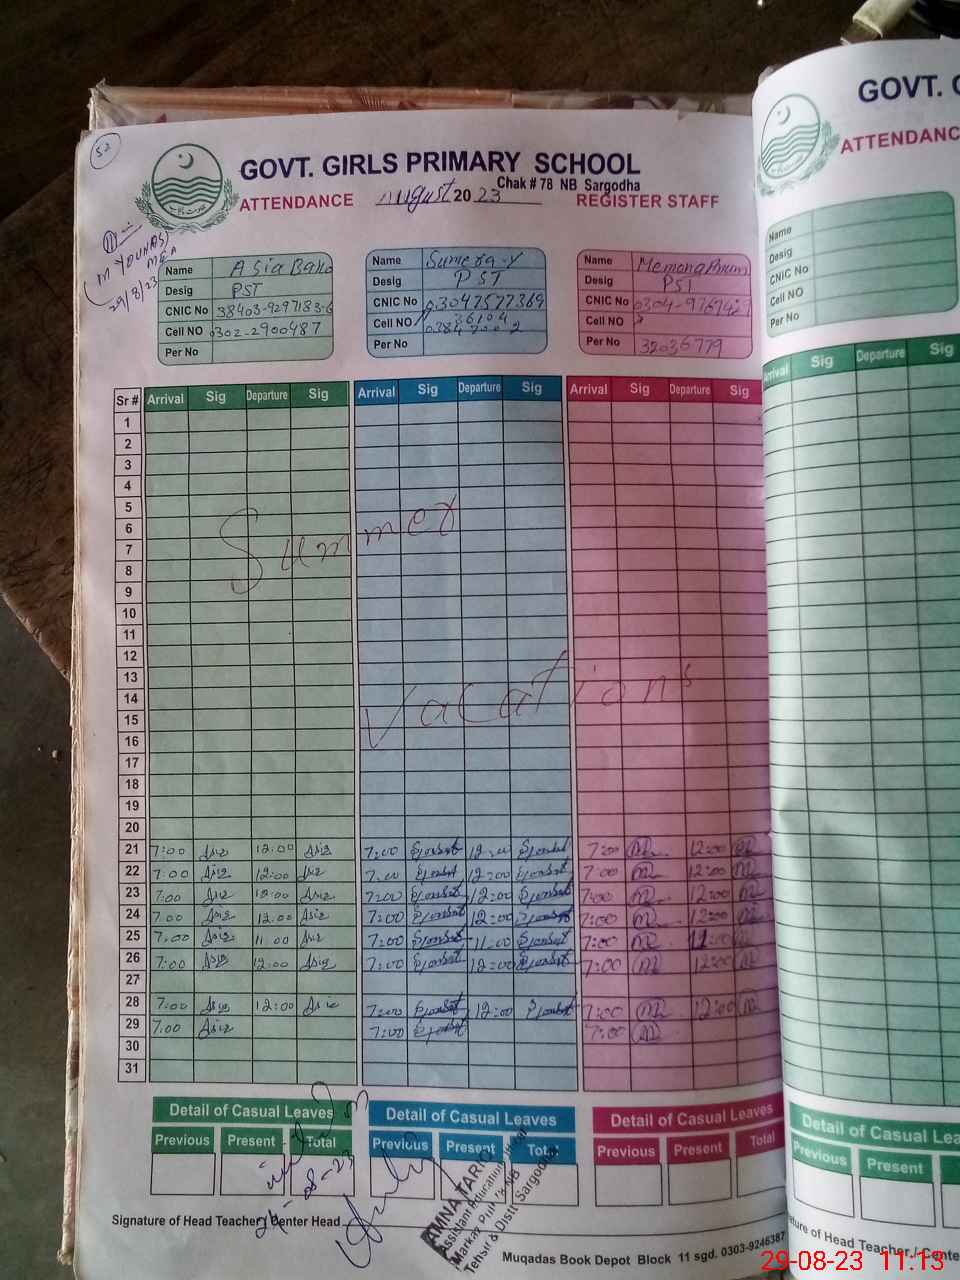 52
GOVT. GIRLS PRIMARY SCHOOL
Chak # 78 NB Sargodha
ATTENDANCE August 2023 REGISTER STAFF
M YOUNAS
MEA
29/8/23
Name Asia Bano
Desig PST
CNIC No 38403-9297183-6
Cell NO 0302-2900487
Per No
Name Sumera-Y
Desig PST
CNIC No 03047577369
Cell NO
Per No
Name
Desig PST
CNIC No
Cell NO
Per No 32036779
Sr # Arrival Sig Departure Sig Arrival Sig Departure Sig Arrival Sig Departure Sig
1
2
3
4
5
6
7
8
9
10
11
12
13
14
15
16
17
18
19
20
Summer
Vacations
21 7:00 Asia 12:00 Asia 7:00 12:00 7:00 M 12:00 M
22 7:00 Asia 12:00 Asia 7:00 12:00 7:00 M 12:00 M
23 7:00 Asia 12:00 Asia 7:00 12:00 7:00 M 12:00 M
24 7:00 Asia 12:00 Asia 7:00 12:00 7:00 M 12:00 M
25 7:00 Asia 11:00 Asia 7:00 11:00 7:00 M 11:00 M
26 7:00 Asia 12:00 Asia 7:00 12:00 7:00 M 12:00 M
27
28 7:00 Asia 12:00 Asia 7:00 12:00 7:00 M 12:00 M
29 7:00 Asia 7:00 7:00 M
30
31
Detail of Casual Leaves Detail of Casual Leaves Detail of Casual Leaves
Previous Present Total Previous Present Total Previous Present Total
Signature of Head Teacher / Center Head
AMNA TARIQ
Assistant Education
Markaz
Tehsil & Distt Sargodha
Muqadas Book Depot Block 11 sgd. 0303-9246387
GOVT. G
ATTENDANC
Name
Desig
CNIC No
Cell NO
Per No
Arrival Sig Departure Sig
Detail of Casual Lea
Previous Present
ture of Head Teacher / Cente
29-08-23 11:13